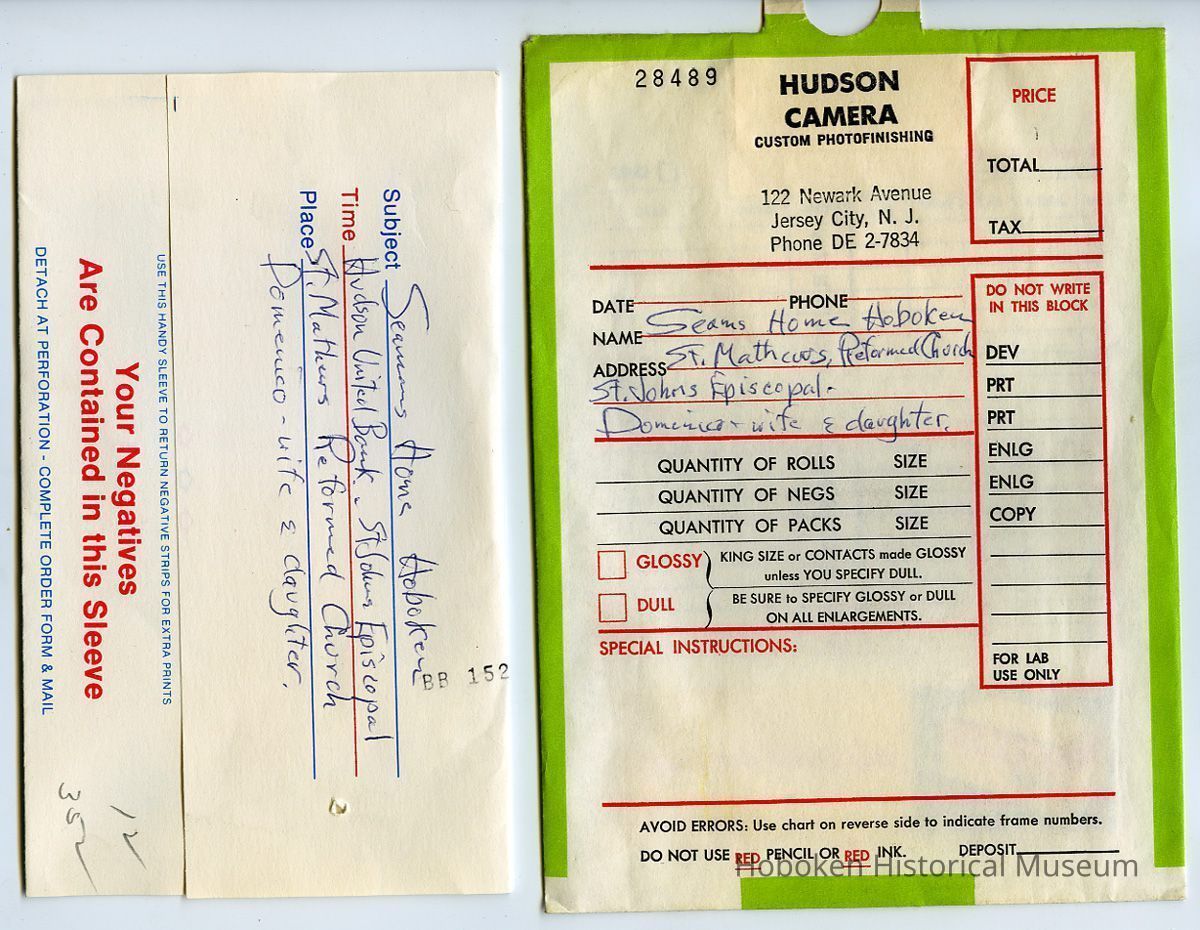 USE THIS HANDY SLEEVE TO RETURN NEGATIVE STRIPS FOR EXTRA PRINTS
Your Negatives
Are Contained in this Sleeve
DETACH AT PERFORATION - COMPLETE ORDER FORM & MAIL
12
Subject Seamans Home Hoboken
Time Hudson United Bank - St Johns Episcopal
Place St. Mathews Reformed Church
Domenico - wife & daughter.
BB 152
28489
HUDSON
CAMERA
CUSTOM PHOTOFINISHING
122 Newark Avenue
Jersey City, N. J.
Phone DE 2-7834
PRICE
TOTAL
TAX
DATE PHONE
NAME Seams Home Hoboken
ADDRESS St. Mathews, Reformed Church
St. Johns Episcopal.
Domenico - wife & daughter.
QUANTITY OF ROLLS SIZE
QUANTITY OF NEGS SIZE
QUANTITY OF PACKS SIZE
GLOSSY
KING SIZE or CONTACTS made GLOSSY
unless YOU SPECIFY DULL.
DULL
BE SURE to SPECIFY GLOSSY or DULL
ON ALL ENLARGEMENTS.
SPECIAL INSTRUCTIONS:
DO NOT WRITE
IN THIS BLOCK
DEV
PRT
PRT
ENLG
ENLG
COPY
FOR LAB
USE ONLY
AVOID ERRORS: Use chart on reverse side to indicate frame numbers.
DO NOT USE RED PENCIL OR RED INK. DEPOSIT
Hoboken Historical Museum